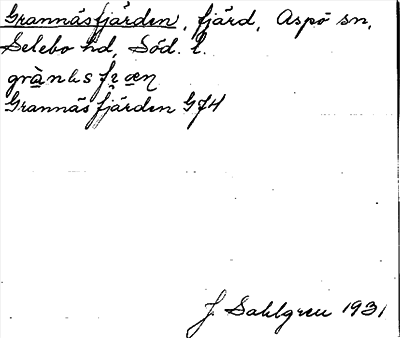 Grannäsfjärden, fjärd, Aspö sn,
Selebo hd, Söd. l.
Grannäsfjärden GJ4
J. Sahlgren 1931